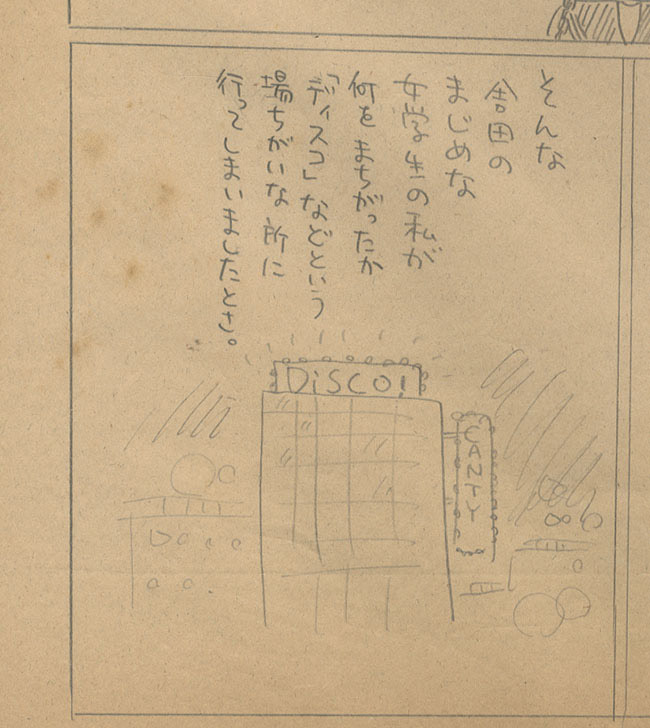 そんな
舎田の
まじめな
女学生の私が
何をまちがったか
「ディスコ」などという
場ちがいな所に
行ってしまいましたとさ。
DiSCO!
CANTY